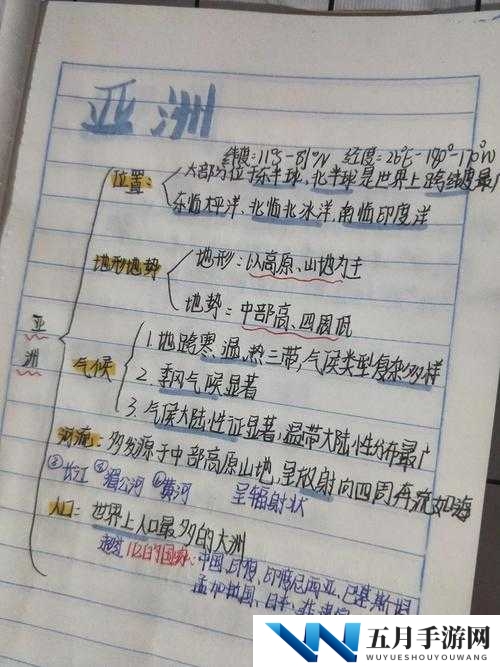 亚洲
纬度:11°S-81°N 经度:26°E-180°-170°W
位置: 大部分位于东半球、北半球是世界上跨纬度最广
东临太平洋、北临北冰洋,南临印度洋
地形地势
地形:以高原、山地为主
地势:中部高、四周低
亚洲
气候
1.地跨寒、温、热三带,气候类型复杂多样
2.季风气候显著
3.气候大陆性征显著,温带大陆性分布最广
河流:多发源于中部高原山地,呈放射向四周奔流如海
长江 湄公河 黄河 呈辐射状
人口:世界上人口最多的大洲
超过1亿的国家:中国、印度、印度尼西亚、巴基斯坦
孟加拉国、日本、菲律宾
五月手游网
WUYUESHOUYOUWANG